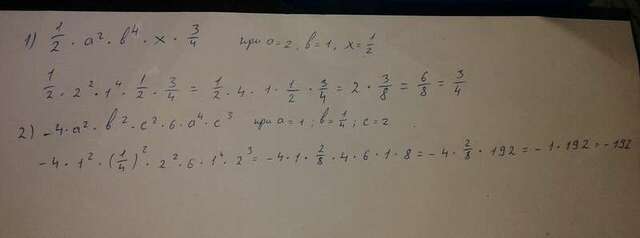 1) 1/2 · a² · b⁴ · x · 3/4 при a=2, b=1, x=1/2
1/2 · 2² · 1⁴ · 1/2 · 3/4 = 1/2 · 4 · 1 · 1/2 · 3/4 = 2 · 3/8 = 6/8 = 3/4
2) -4 · a² · b² · c² · 6 · a⁴ · c³ при a=1; b=1/4; c=2
-4 · 1² · (1/4)² · 2² · 6 · 1⁴ · 2³ = -4 · 1 · 2/8 · 4 · 6 · 1 · 8 = -4 · 2/8 · 192 = -1 · 192 = -192